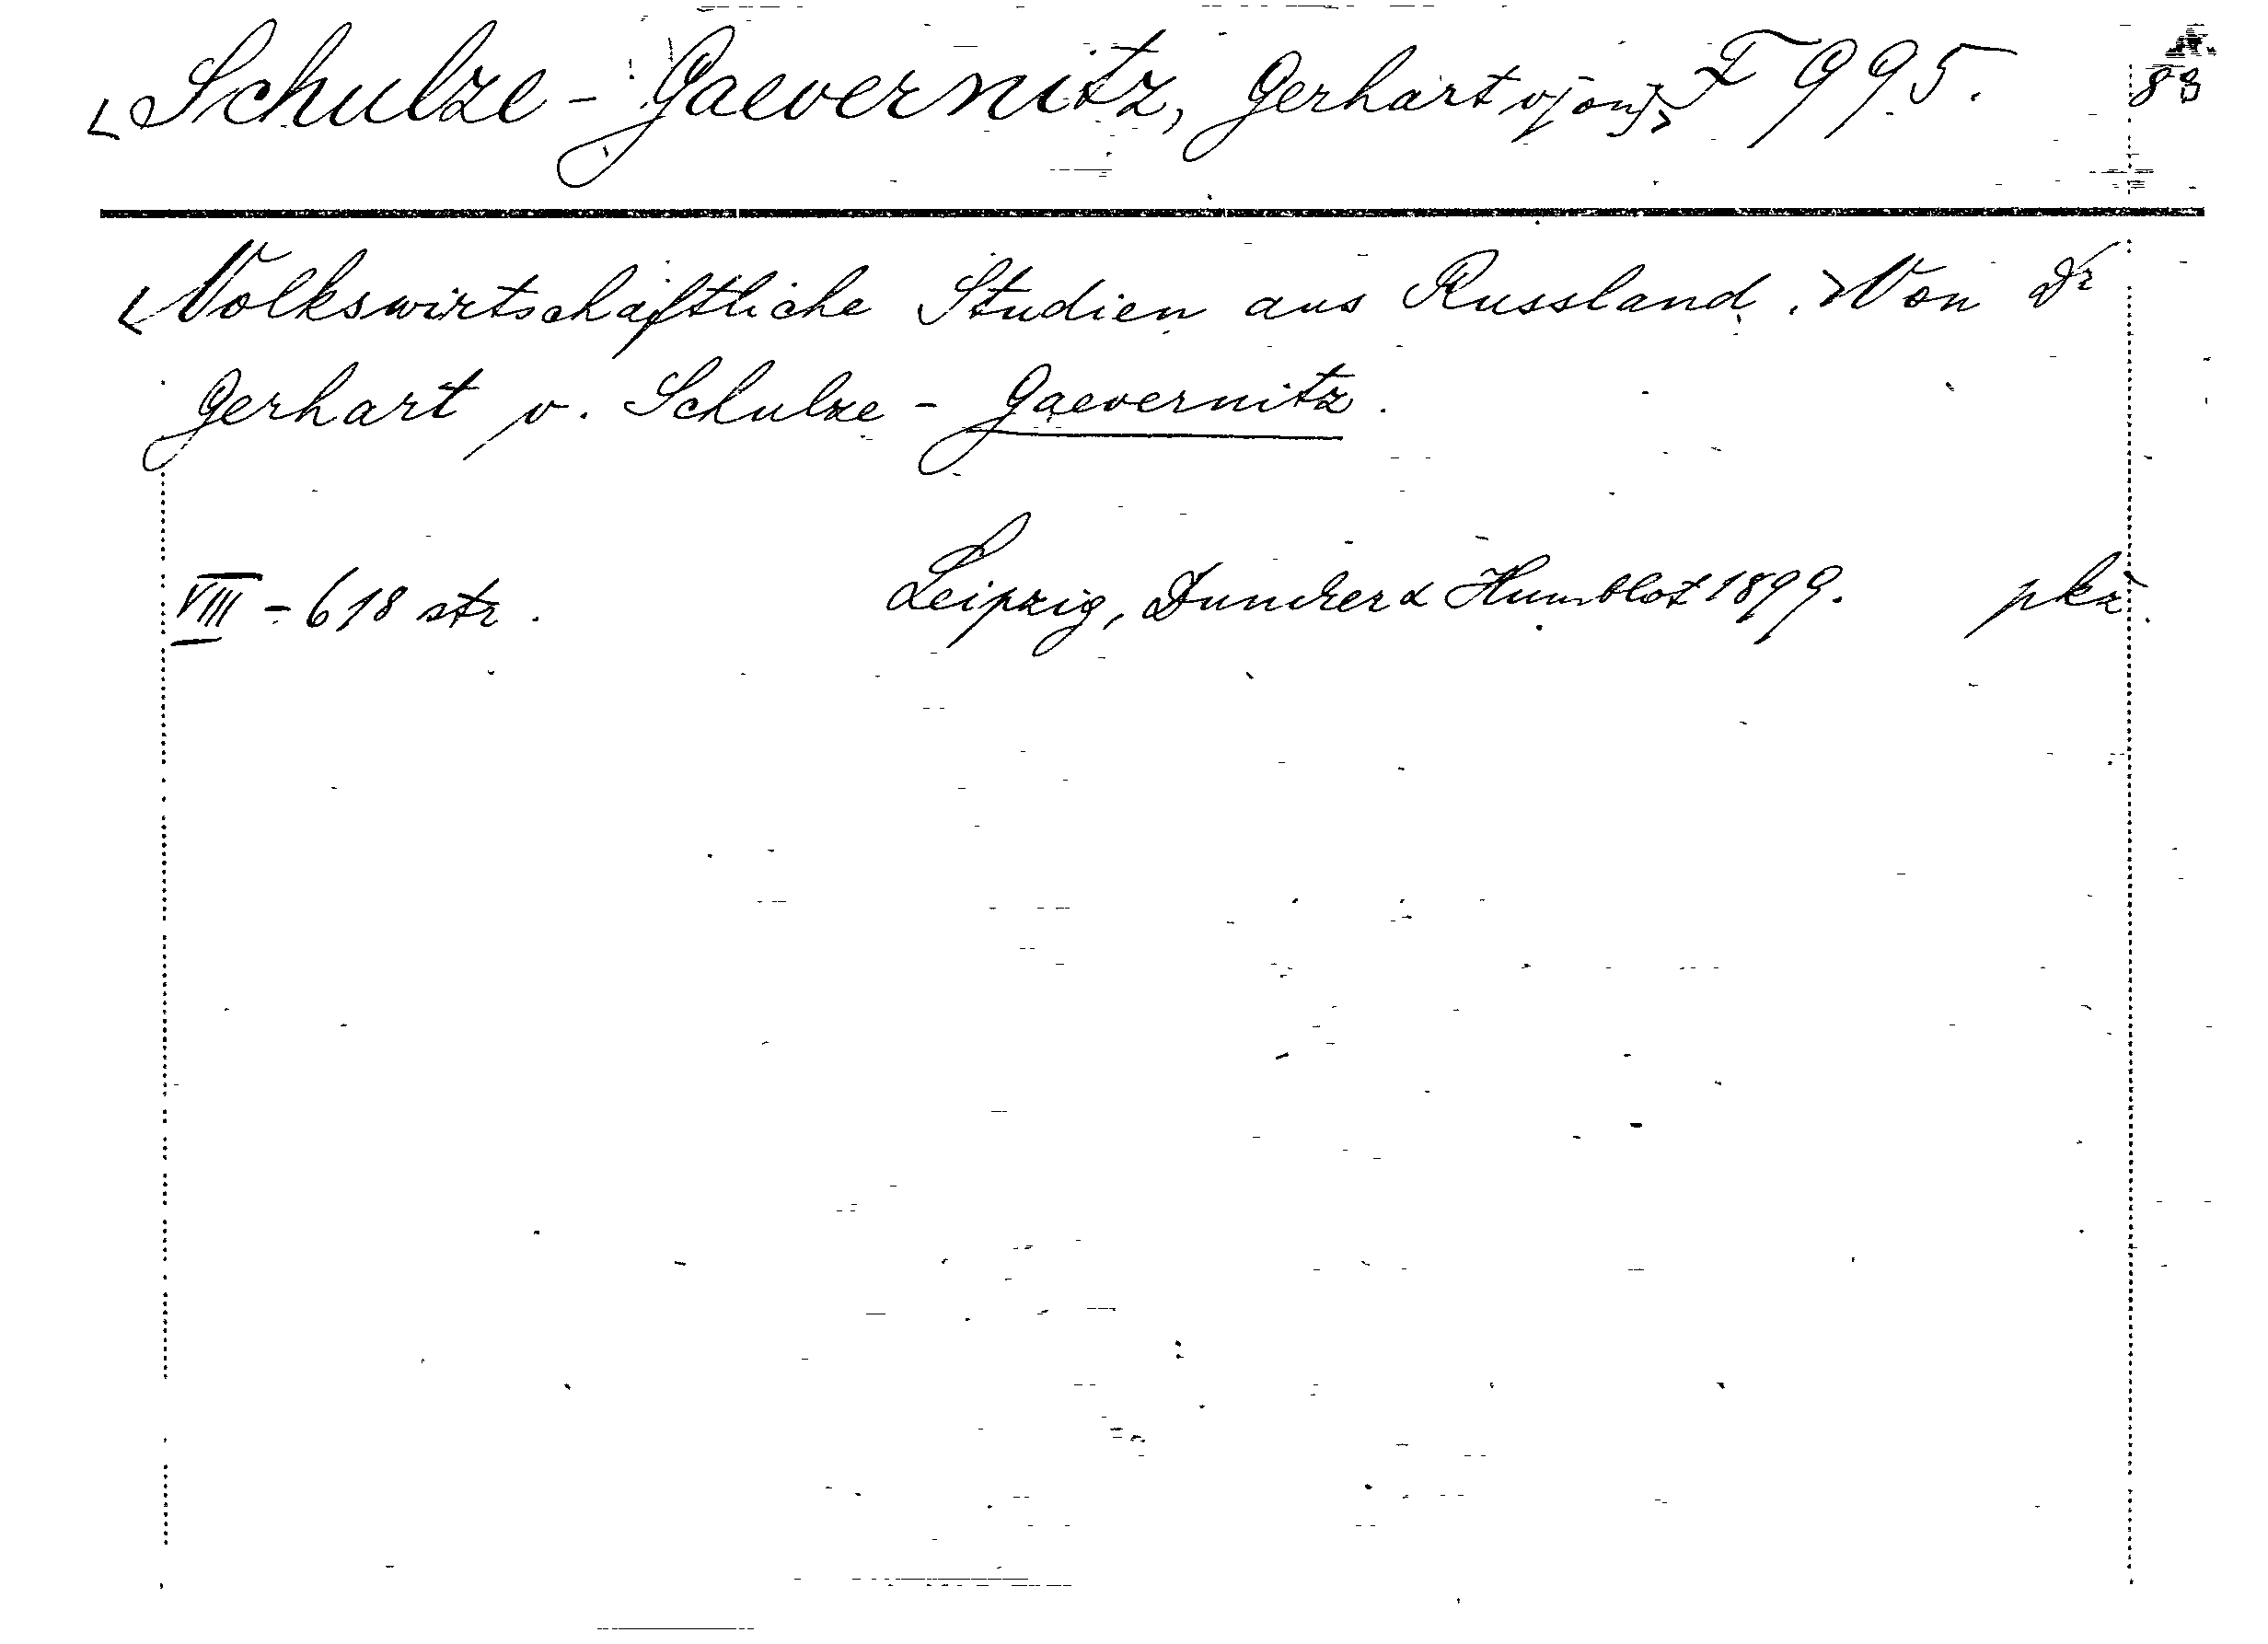 <Schulze-Gaevernitz, Gerhart v[on]> F 995. 83
<Volkswirtschaftliche Studien aus Russland.> Von Dr
Gerhart v. Schulze-Gaevernitz.
VIII-618 str. Leipzig, Duncker & Humblot 1899. pkž.